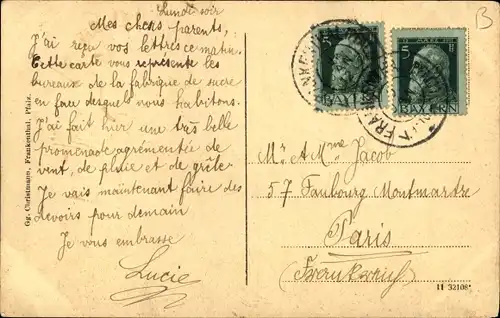 Lundi soir
Mes chers parents,
J'ai reçu vos lettres ce matin.
Cette carte vous représente les
bureaux de la fabrique de sucre
en face desquels nous habitons.
J'ai fait hier une très belle
promenade agrémentée de
vent, de pluie et de grêle
Je vais maintenant faire des
devoirs pour demain
Je vous embrasse
Lucie
Gg. Christmann, Frankenthal, Pfalz.
5
BAYERN
5
BAYERN
Mr & Mme Jacob
57 Faubourg Montmartre
Paris
(Frankreich)
11 32108
B